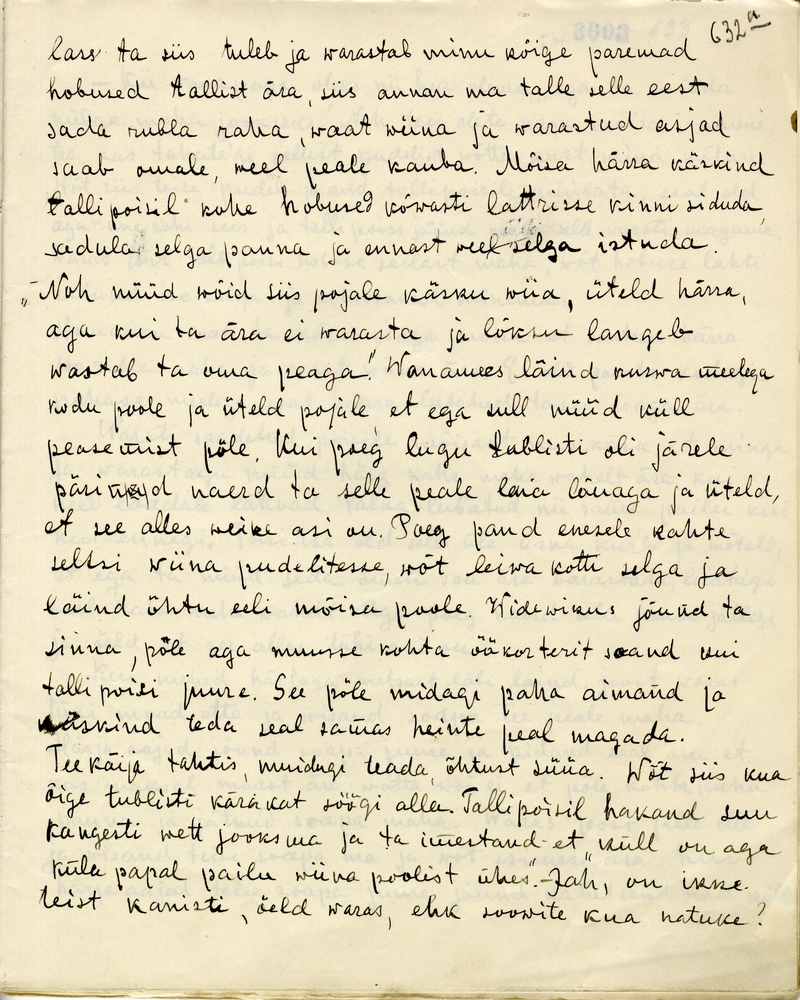 632a
lass ta siis tuleb ja warastab minu kõige paremad
hobused tallist ära, siis annan ma talle selle eest
sada rubla raha, waat wiina ja warastud asjad
saab omale, weel peale kauba. Mõisa härra käskind
tallipoisil kohe hobused kõwasti lattrisse kinni siduda,
sadula selga panna ja ennast weel selga istuda.
„Noh nüüd wõid siis pojale käsku wiia, üteld härra,
aga kui ta ära ei warasta ja lõksu langeb
wastab ta oma peaga." Wanamees läind kurwa meelega
kodu poole ja üteld pojale et ega sull nüüd küll
peasemist põle. Kui poeg lugu tublisti oli järele
pärind naerd ta selle peale laia lõuaga ja üteld,
et see alles weike asi on. Poeg pand enesele kahte
seltsi wiina pudelitesse, wõt leiwa kotti selga ja
läind õhtu eeli mõisa poole. Widewikus jõund ta
sinna, põle aga muusse kohta öökorterit saand kui
talli poisi juure. See põle midagi paha aimand ja
käskind teda seal samas heinte peal magada.
Teekäija tahtis, muidugi teada, õhtust süüa. Wõt siis kua
õige tublisti kärakat söögi alla. Tallipoisil hakand suu
kangesti wett jooksma ja ta imestand et „küll on aga
küla papal pailu wiina poolist ühes". Jah, on ikke
teist kanisti, öeld waras, ehk soowite kua natuke?